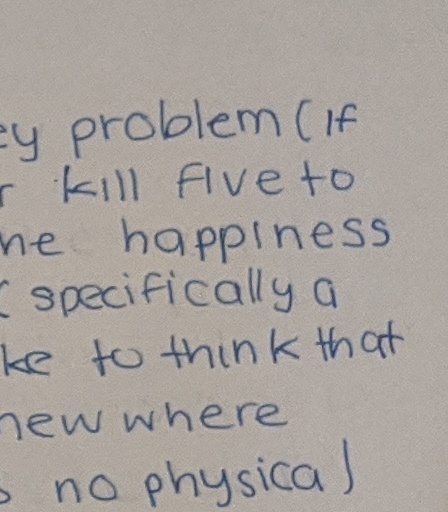 ey problem (If
r kill five to
he happiness
( specifically a
ke to think that
new where
s no physical